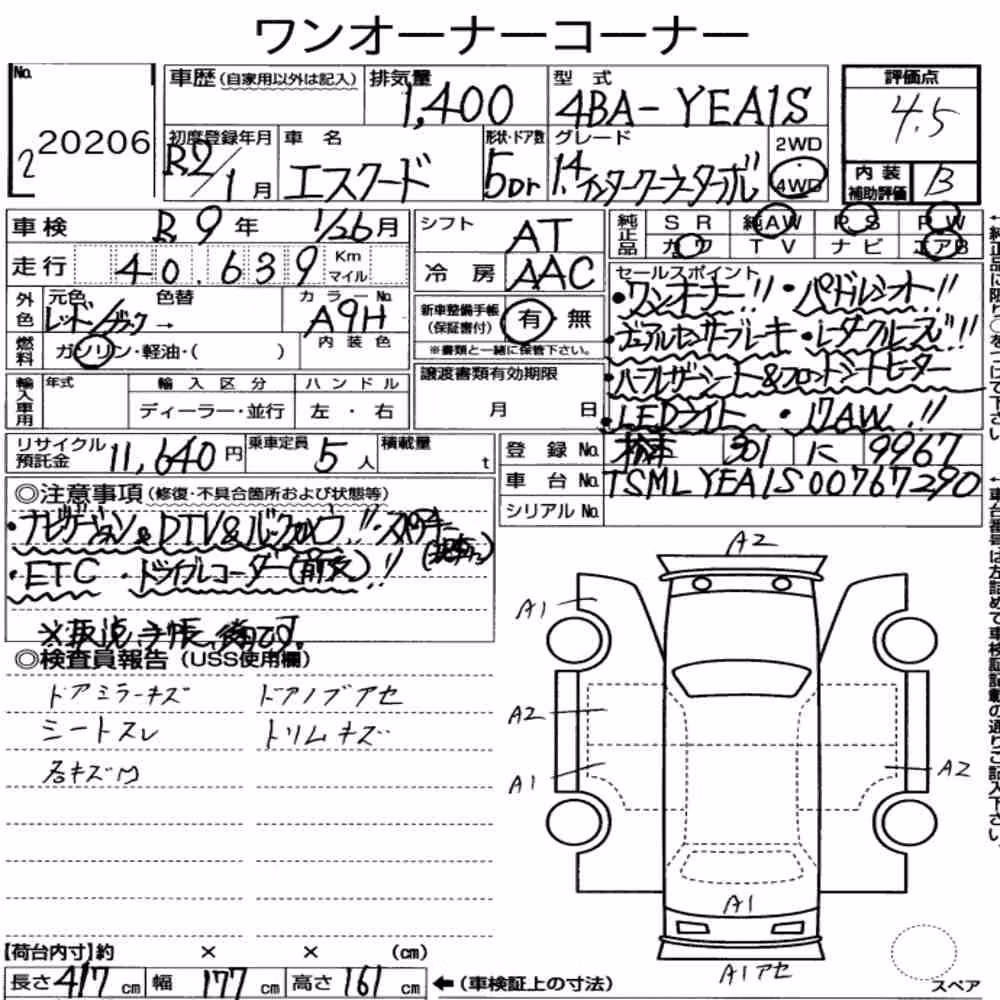 ワンオーナーコーナー
No. 20206 2
車歴 (自家用以外は記入) 排気量 1,400 型式 4BA-YEA1S 評価点 4.5
初度登録年月 R2/1月 車名 エスクード 形状・ドア数 5Dr グレード 1.4 インタークーラーターボ 2WD 4WD 内装補助評価 B
車検 R9年 1/26月
走行 40.639 Km マイル
外色 元色 レッド/ブラック 色替 → カラーNo. A9H
燃料 ガソリン・軽油・( ) 内装色
輸入車用 年式 輸入区分 ディーラー・並行 ハンドル 左・右
シフト AT
冷房 AAC
新車整備手帳 (保証書付) 有・無
※書類と一緒に保管下さい。
譲渡書類有効期限
月 日
純正品 SR 純AW P.S P.W
カワ TV ナビ エアB
セールスポイント
・ワンオーナー!! ・パドルシフト!!
・デュアルセンサーブレーキ ・レーダークルーズ!!
・ハーフレザーシート&フロントシートヒーター
・LEDライト ・17AW!!
リサイクル預託金 11,640円 乗車定員 5人 積載量 t
登録No. 301 に 9967
車台No. TSMLYEA1S00767290
シリアルNo.
◎注意事項 (修復・不具合箇所および状態等)
・ナビゲーション&DTV&バックカメラ!! スペアキー
・ETC ・ドライブレコーダー(前後)!!
※取説、手帳、後日です。
◎検査員報告 (USS使用欄)
ドアミラーキズ ドアノブアセ
シートスレ トリムキズ
各キズ有
A2
A1
A2
A1
A2
A1
A1アセ
スペア
【荷台内寸】約 × × (cm)
長さ 417 cm 幅 177 cm 高さ 161 cm ←(車検証上の寸法)
↑純正品に限り○をつけて下さい。
↑車台番号は左詰めで車検証記載の通りご記入下さい。